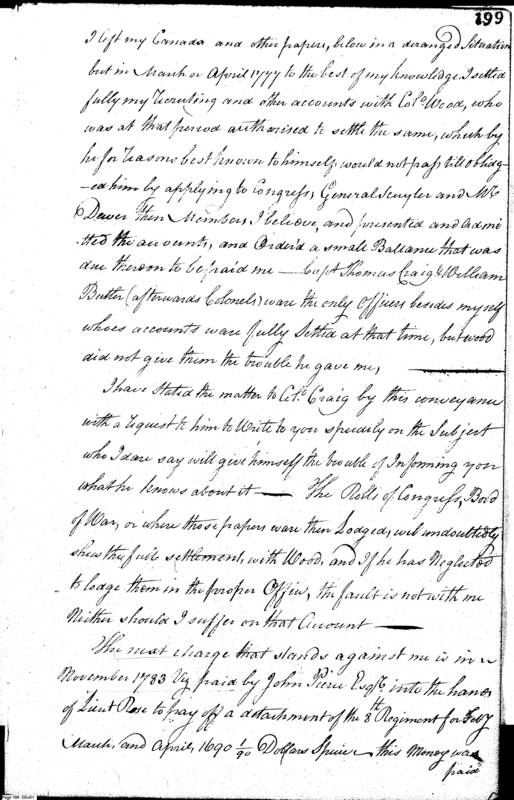 199
I left my Canada and other papers, below in a deranged Situation
but in March or April 1777 to the best of my knowledge. I settled
fully my recruiting and other accounts with Colo. Wood, who
was at that period authorised to settle the same, which by
he for reasons best known to himself would not pass till oblidg-
-ed him by applying to Congress, General Scuyler and Mr.
Dewer then Members, I believe, and presented and admi
tted the accounts, and Order'd a small Ballance that was
due thereon to be paid me — Capt Thomas Craig & William
Butler (afterwards Colonels) ware the only Officers besides myself
whoes accounts ware fully Settled at that time, but wood
did not give them the trouble he gave me,
I have Stated the matter to Colo. Craig by this conveyance
with a request to him to Write to you speedily on the Subject
who I dare say will give himself the trouble of Informing you
what he knows about it — The Rolls of Congress, Bord
of War, or where those papers ware then Lodged, will undoubtedly
shew the full settlement, with Wood, and If he has Neglected
to lodge them in the proper Office, the fault is not with me
Neither should I suffer on that Account —
The next charge that stands against me is in
November 1783 Viz paid by John Pierce Esqr. into the hands
of Lieut Rose to pay off a detachment of the 8th Regiment for Feby
March, and April 1690 1/90 Dollars Specie — this Money was
paid
Page 199 DDJ01